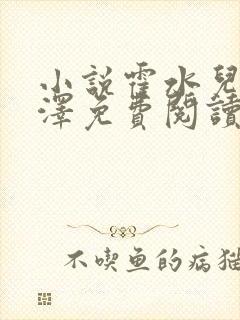 小說霍水兒
澤免費閱讀
不喫鱼的病猫